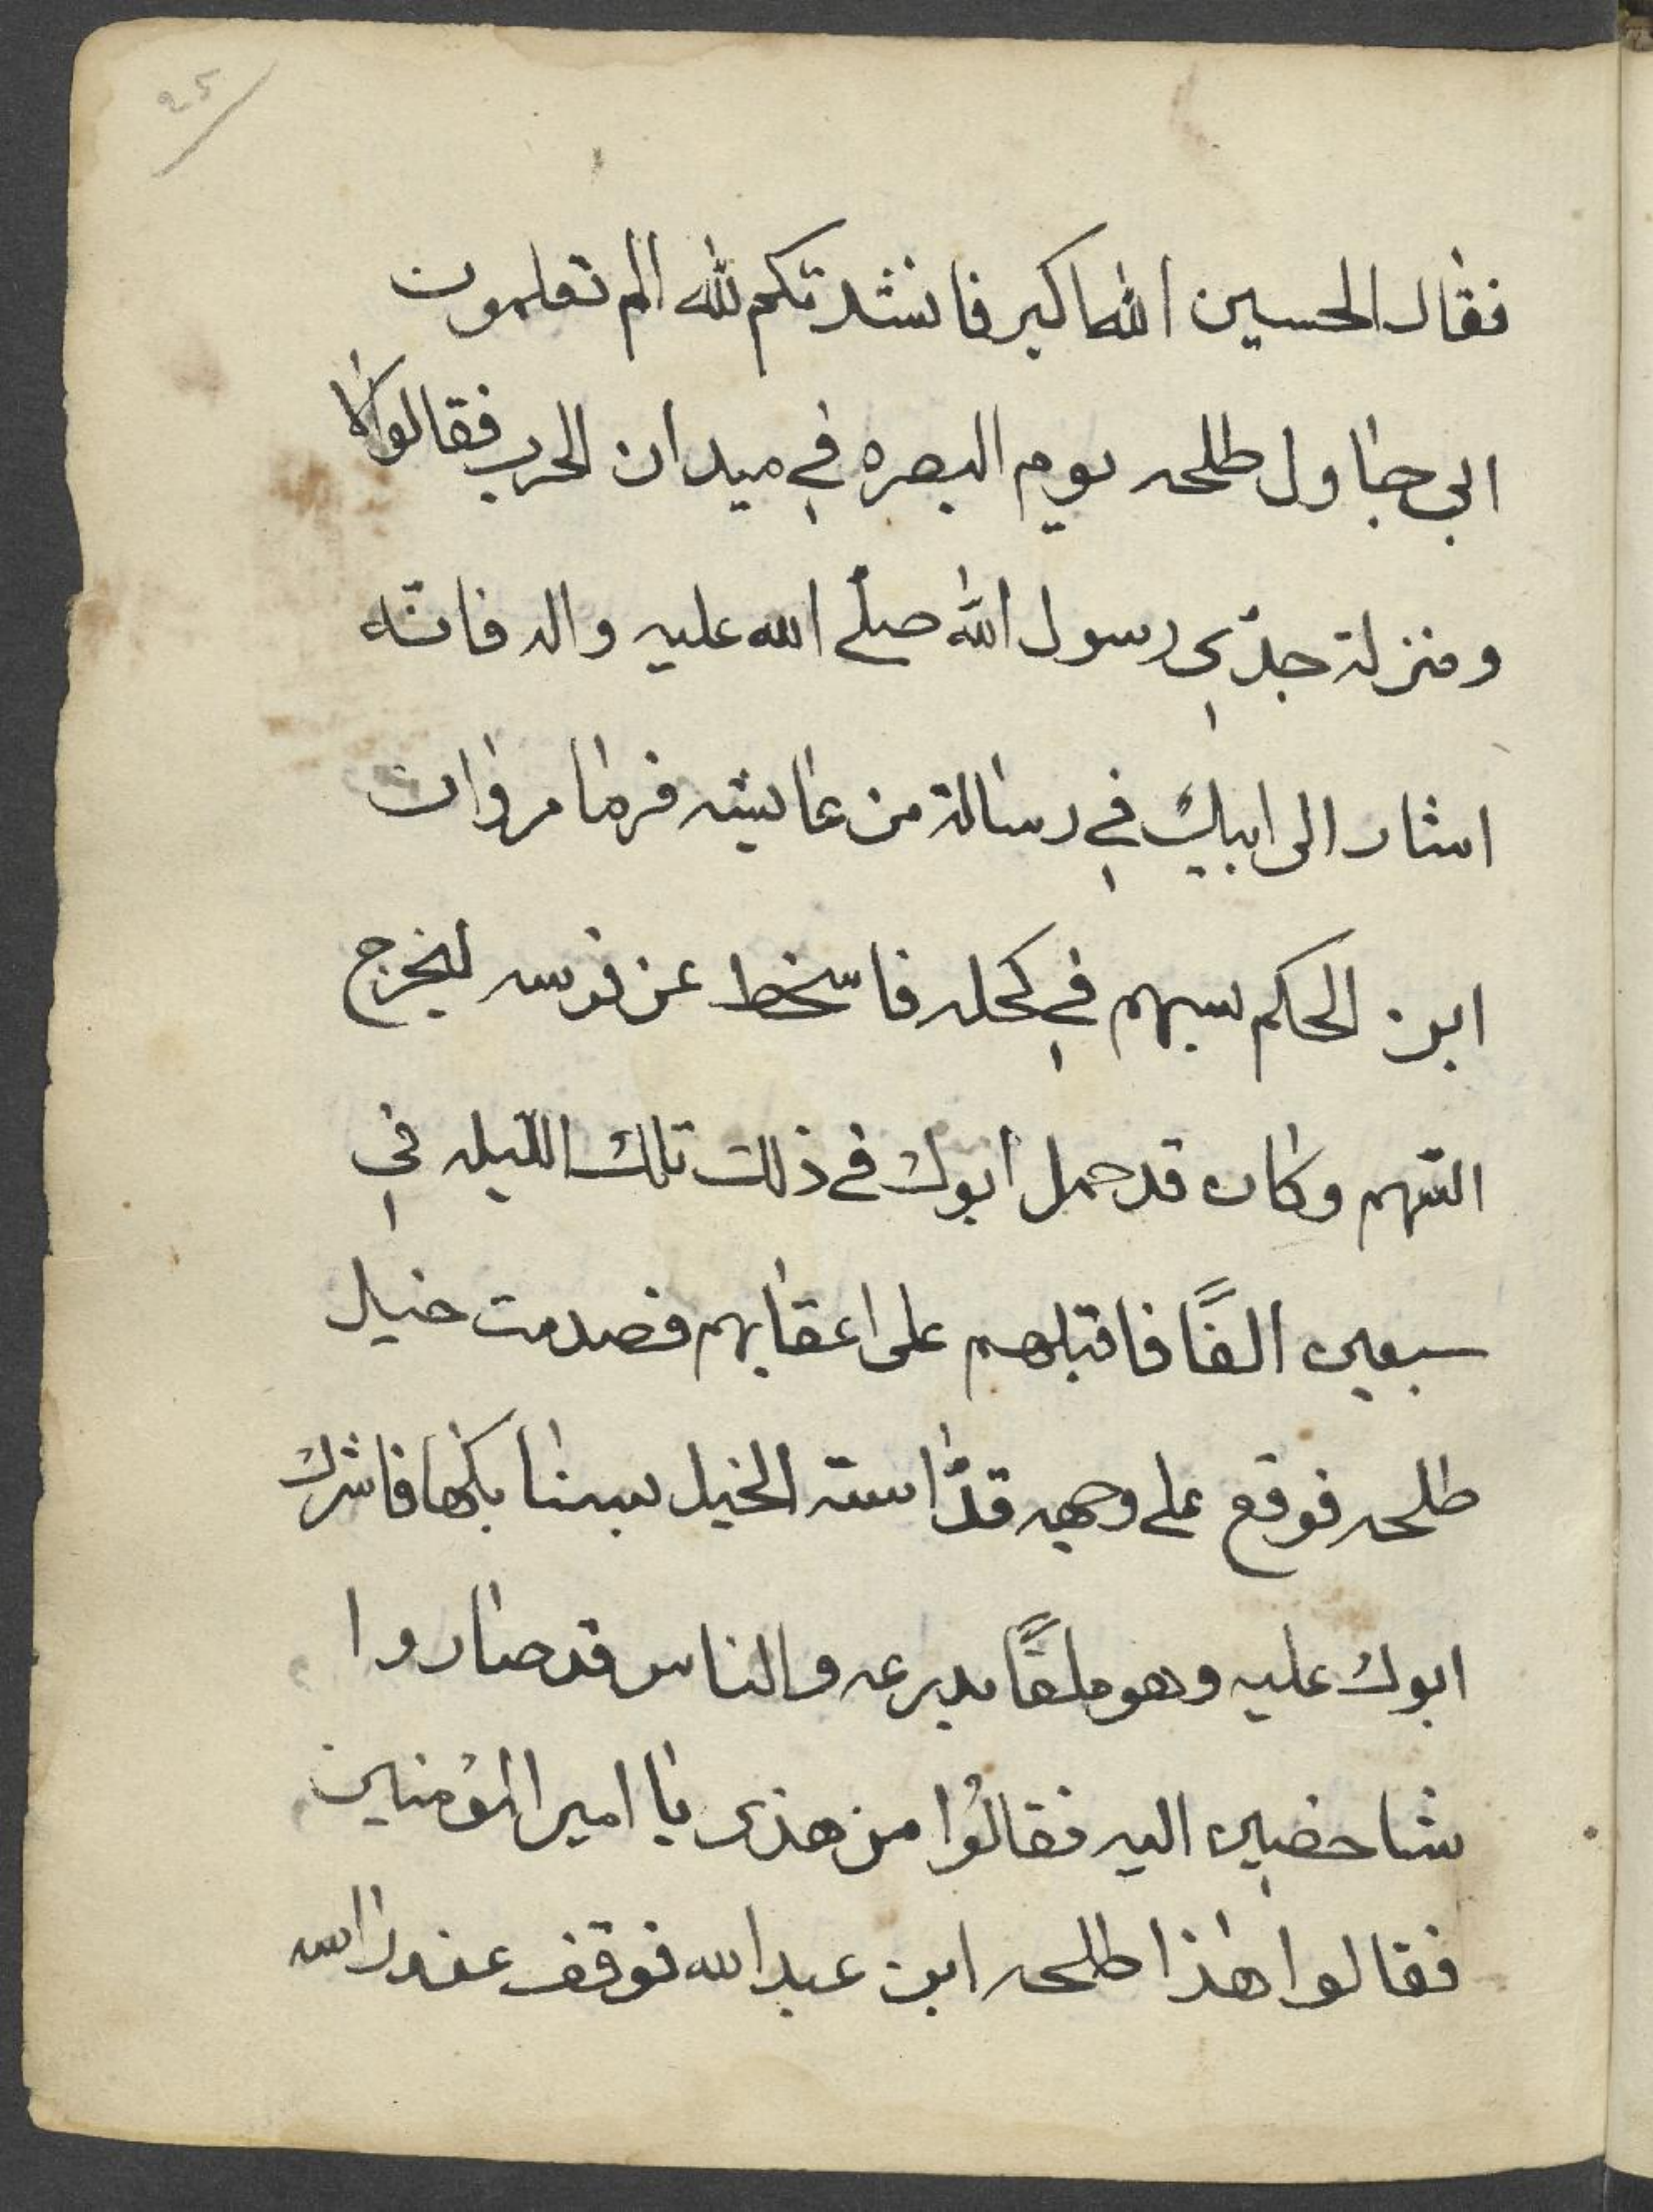 25
فقال الحسين الله اكبر فانشدتكم لله الم تعلمون
ابي جاول طلحه يوم البصره في ميدان الحرب فقالوا
ومنزلة جدّي رسول الله صلّى الله عليه واله فانّه
اشار الى ابيك في رسالة من عايشه فرما مروان
ابن الحكم بسهم في كحله فاسخط عن فرسه ليخرج
السّهم وكان قد حمل ابوك في ذلك تلك الليله في
سبعين الفًا فاقبلهم على اعقابهم فصدمت خيل
طلحه فوقع على وجهه قد استه الخيل بسنابكها فاشرك
ابوك عليه وهو ملقًا بدرعه والناس قد صاروا
شاخصين اليه فقالوُا من هذى يا امير المؤمنين
فقالوا هذا طلحه ابن عبدالله فوقف عند راسه